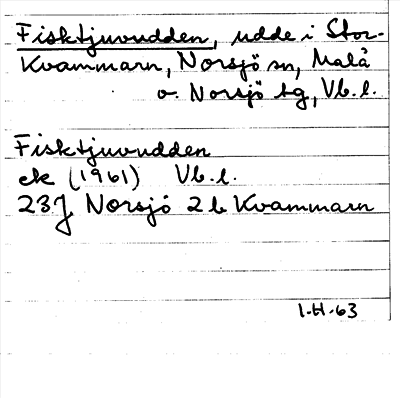 Fisktjuvudden, udde i Stor-
Kvammarn, Norsjö sn, Malå
o. Norsjö tg, Vb. l.
Fisktjuvudden
ek (1961) Vb. l.
23J Norsjö 2b Kvammarn
I.H.63